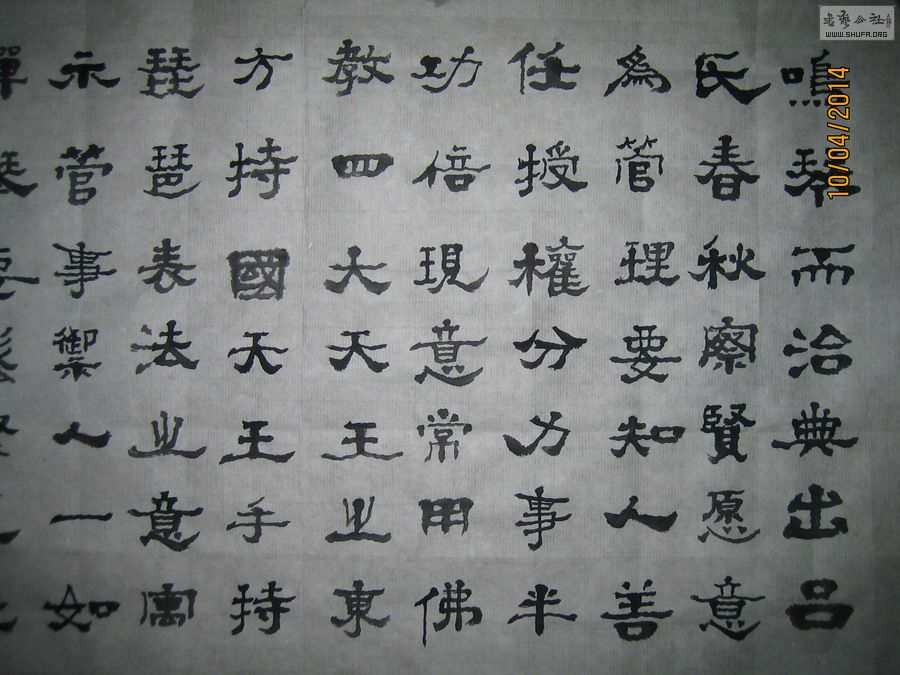 鳴琴而治典出呂
氏春秋察賢愿意
為管理要知人善
任授權分力事半
功倍現意常用佛
教四大天王之東
方持國天王手持
琵琶表法之意寓
示管事禦人一如
書藝公社
WWW.SHUFA.ORG
10/04/2014